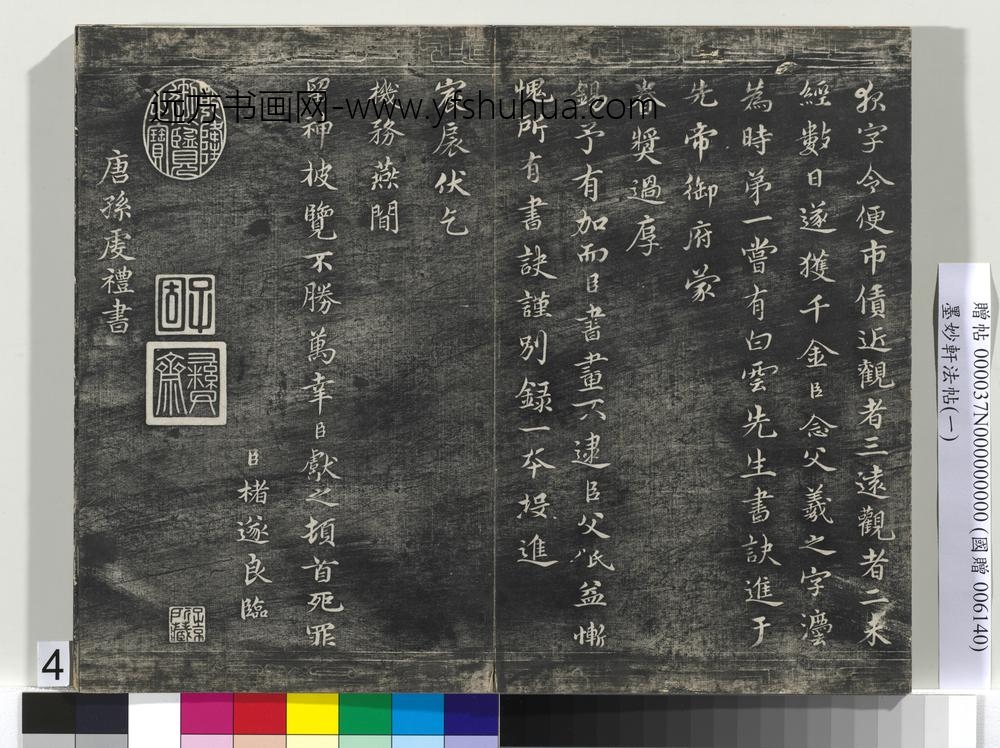 字令便市債近觀者三遠觀者二未
經數日遂獲千金臣念父羲之字法
為時第一嘗有白雲先生書訣進于
先帝御府蒙
眷獎過厚
錫予有加而臣書畫不逮臣父祇益慚
愧所有書訣謹別錄一本投進
宸扆伏乞
機務燕閒
留神披覽不勝萬幸臣獻之頓首死罪
臣褚遂良臨
乾隆御覽之寶
子固
彝齋
唐孫虔禮書
远方书画网-www.yfshuhua.com
4
贈帖 000037N000000000 (國贈 006140)
墨妙軒法帖(一)